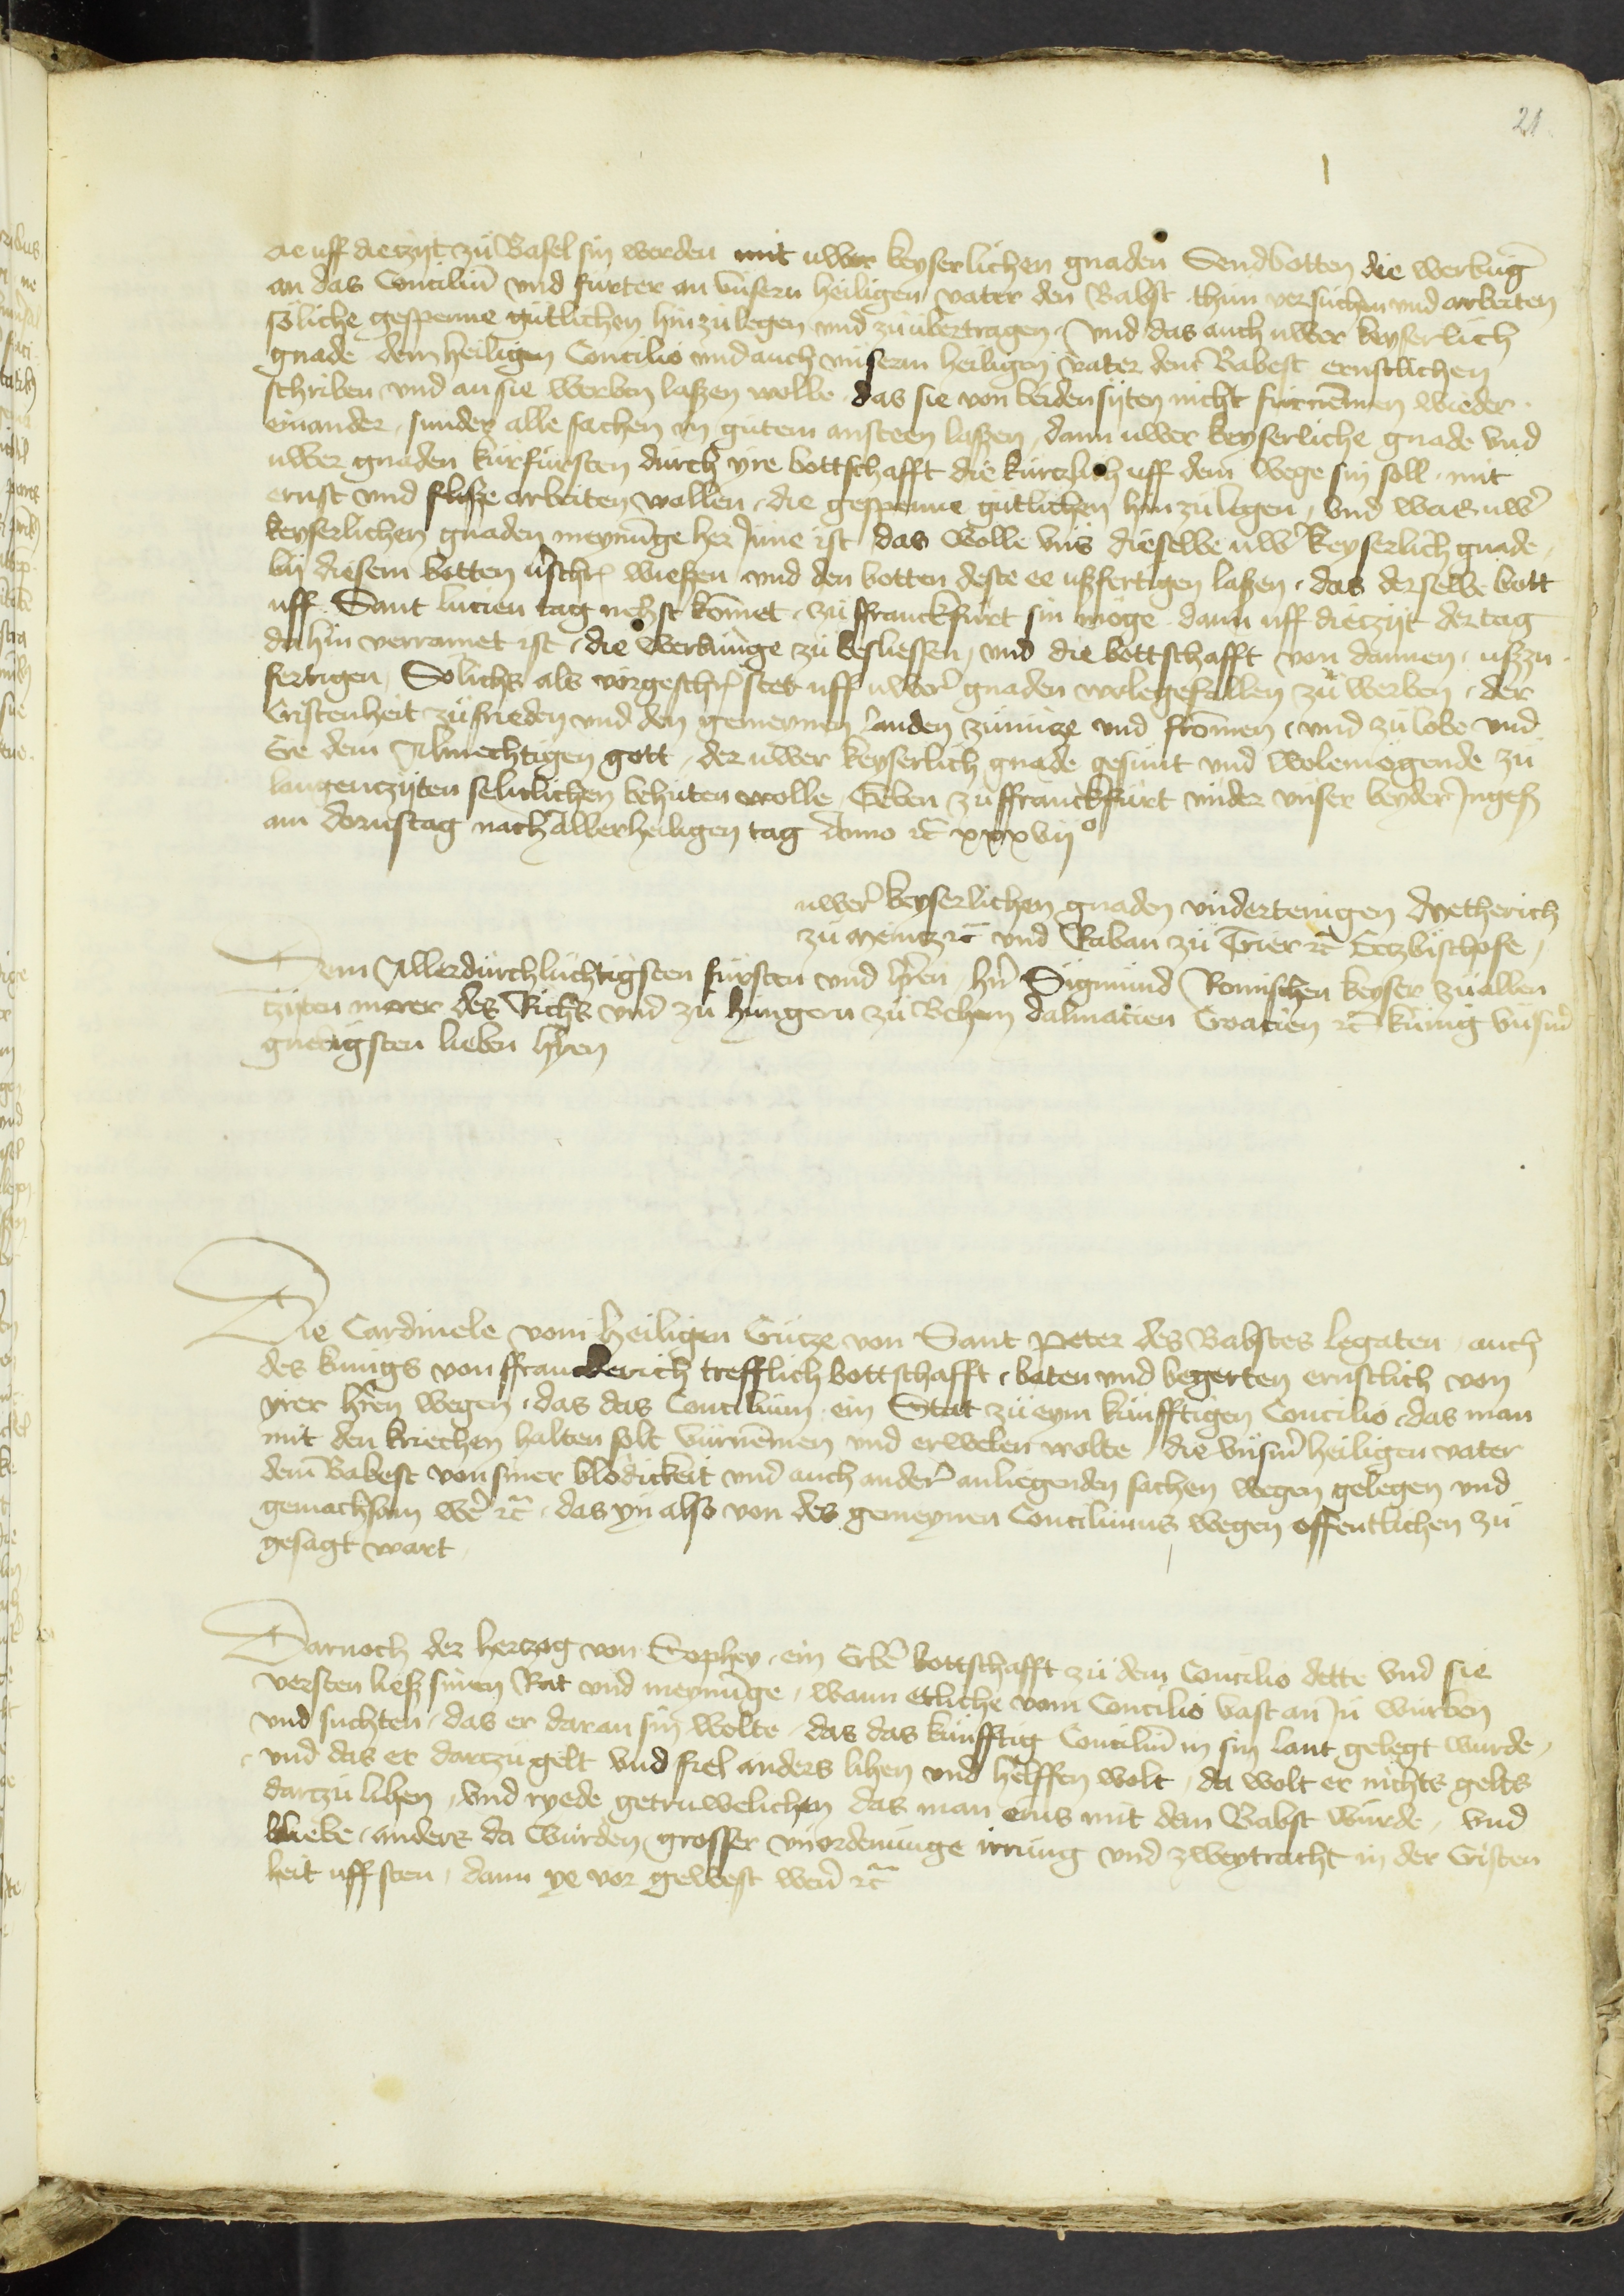 21
die uff die czijt zu Basel sin werden mit uwer keyserlichen gnaden Sendbotten die werbu̅g
an das Conciliu̅ und furter an unsern heiligen vater den Babst thun versuchen und arbeiten
soliche gespenne gutlichen hinzulegen und zu ubertragen und das auch uwer keyserlich
gnade dem heiligen Concilio und auch unserm heiligen vater dem Babest ernstlichen
schriben und an sie werben laßen wolle das sie von beiden sijten nicht furnemen wieder
einander, sunder alle sachen in gutem ansteen laßen, dann uwer keyserliche gnade und
uwer gnaden kurfursten durch yre bottschafft die kurczlich uff dem wege sin soll mit
ernst und fliße arbeiten wollen, die gespenne gutlichen hin zu legen, und was uwer
keyserlichen gnaden meynu̅ge her Inne ist, das wolle uns dieselbe uwer keyserlich gnade
bij diesem botten v̓schr̅ wießen und den botten deste ee ußfertigen laßen, das derselbe bott
uff Sant lucien tag nehst komet, zu ffranckfurt sin moge dann uff die czijt der tag
dahin verramet ist, die werbunge zu besliessen, und die bottschafft von dannen ußzu
fertigen, Solichs als vorgeschr̅ stet uff uwer gnaden wolegefallen zu werben, der
Cristenheit zu frieden und den gemeynen landen zu nucze und fromen, und zu lobe und
Ere dem Almechtigen gott, der uwer keyserlich gnade gesunt und wolemogende zu
langenczijten seliclichen behuten wolle, Geben zu ffranckfurt under unser beyder Ingeß
am dornstag nach allerheiligen tag Anno etc̅ xxxvijo
uwer keyserlichen gnaden undertenigen Dietherich
zu Meincz etc̅ und Raban zu Trier etc̅ Erczbischofe,
Dem Allerdurchluchtigsten fursten und h̓ren, h̓n Sigmund Romischen keyser zu allen
czijten merer des Richs und zu hungern zu Behem dalmacien Croacien etc̅ kunig unserm
gnedigsten lieben h̓ren
Die Cardinele vom heiligen Crucze von Sant Peter des Babstes legaten, auch
des kunigs von ffranckerich trefflich bottschafft, baten und begerten ernstlich von
yrer h̓ren wegen, das das Concilium ein Stat zu eym kunfftigen Concilio, das man
mit den kriechen halten solt vurnemen und erwelen wolte, die unserm heiligen vater
dem Babest von siner blodickeit und auch ander anliegenden sachen wegen gelegen und
gemachsam wer̓ etc̅, das yn also von des gemeynen Conciliums wegen offentlichen zu
gesagt wart
Darnoch der herczog von Sophey, ein Erbe̓ bottschafft zu dem Concilio dette und sie
versten ließ sinen Rat und meynu̅ge, wann etliche vom Concilio vast an In wurben
und suchten, das er daran sin wolte, das das kunfftig Conciliu̅ in sin lant gelegt wurde,
und das er darczu gelt und fiel anders lihen und helffen wolt, da wolt er nichts gelts
darczu lihen, und ryede getruwelichen das man eins mit dem Babst wurde, und
bliebe, anders da wurden grosser unordenunge irrung und zweytracht in der Cristen
heit uff sten, dann ye vor gewest were̓ etc̅